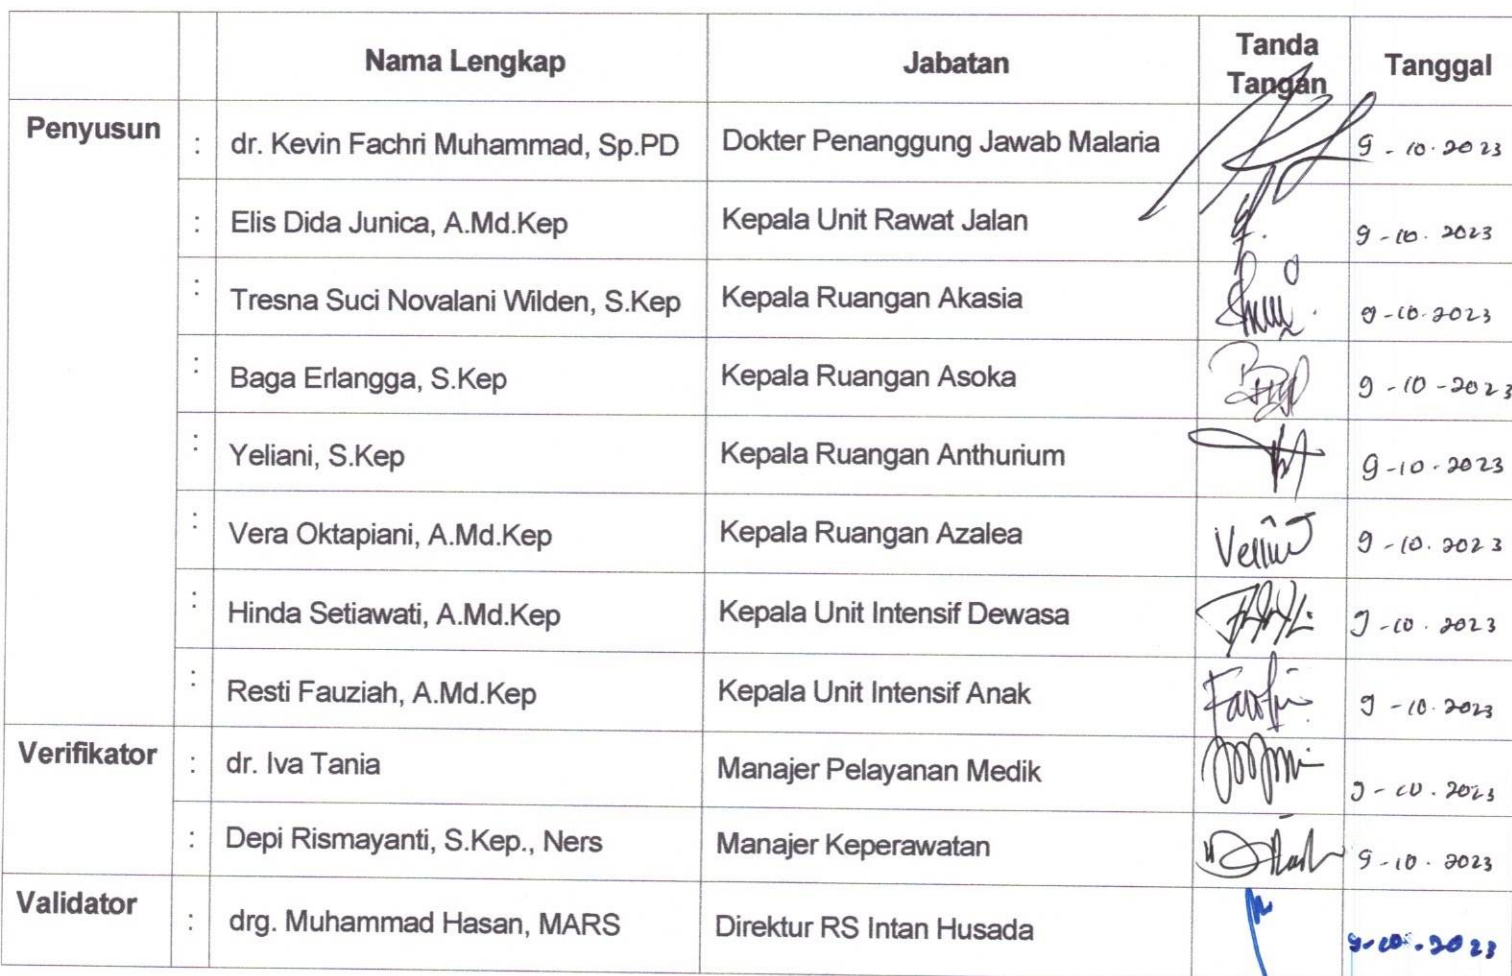 Nama Lengkap Jabatan Tanda Tangan Tanggal
Penyusun : dr. Kevin Fachri Muhammad, Sp.PD Dokter Penanggung Jawab Malaria 9 - 10 . 2023
: Elis Dida Junica, A.Md.Kep Kepala Unit Rawat Jalan 9 - 10 . 2023
: Tresna Suci Novalani Wilden, S.Kep Kepala Ruangan Akasia 9 - 10 . 2023
: Baga Erlangga, S.Kep Kepala Ruangan Asoka 9 - 10 - 2023
: Yeliani, S.Kep Kepala Ruangan Anthurium 9 - 10 . 2023
: Vera Oktapiani, A.Md.Kep Kepala Ruangan Azalea 9 - 10 . 2023
: Hinda Setiawati, A.Md.Kep Kepala Unit Intensif Dewasa 9 - 10 . 2023
: Resti Fauziah, A.Md.Kep Kepala Unit Intensif Anak 9 - 10 . 2023
Verifikator : dr. Iva Tania Manajer Pelayanan Medik 9 - 10 . 2023
: Depi Rismayanti, S.Kep., Ners Manajer Keperawatan 9 - 10 . 2023
Validator : drg. Muhammad Hasan, MARS Direktur RS Intan Husada 9 - 10 . 2023